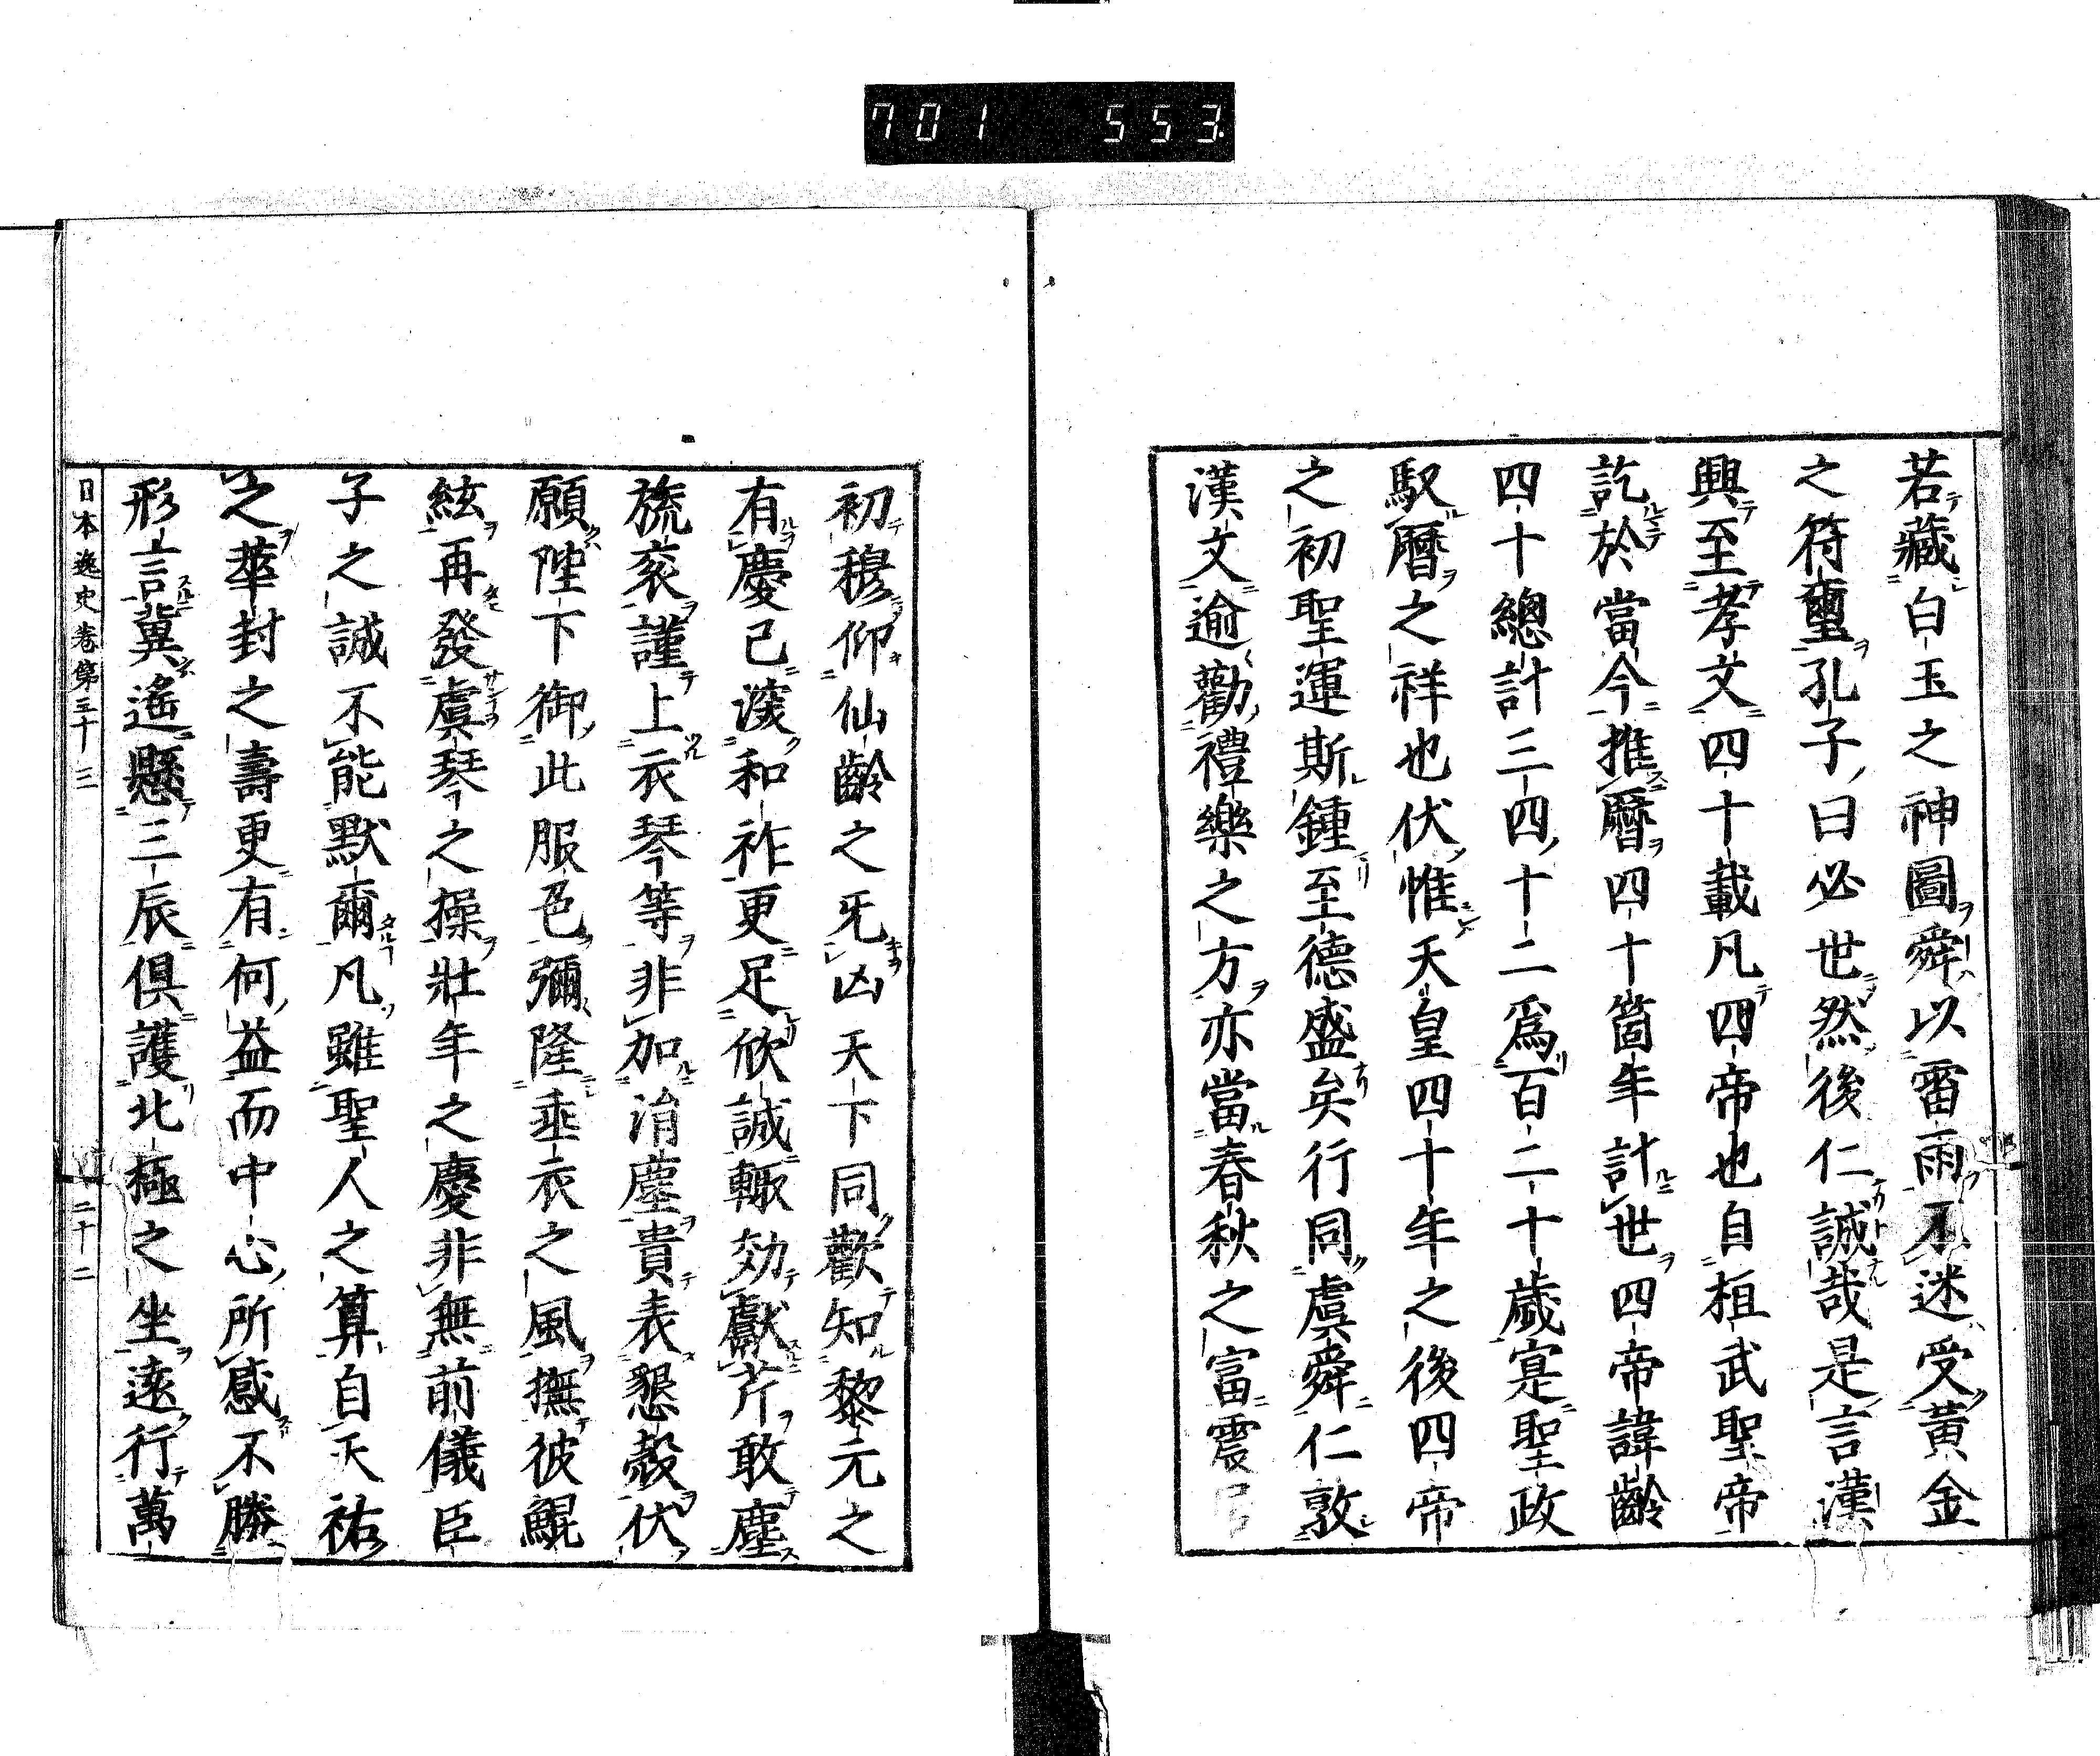 701 553
若藏白玉之神圖舜以雷雨不迷受黃金
之符璽孔子曰必世然後仁誠哉是言漢
興至孝文四十載凡四帝也自桓武聖帝
訖於當今推曆四十箇年計世四帝諱齡
四十總計三四十二爲百二十歲寔聖政
馭曆之祥也伏惟天皇四十年之後四帝
之初聖運斯鍾至德盛矣行同虞舜仁敦
漢文逾勸禮樂之方亦當春秋之富震
初穆仰仙齡之兂凶天下同歡知黎元之
有慶已淡和祚更足欣誠輙効獻芹敢塵
旒衮謹上衣琴等非加涓塵貴表懇愨伏
願陛下御此服色彌隆垂衣之風撫彼鯤
絃再發虞琴之操壯年之慶非無前儀臣
子之誠不能默爾凡雖聖人之算自天祐
之華封之壽更有何益而中心所感不勝
形言冀遙懸三辰俱護北極之坐遠行萬
日本逸史卷第三十三 二十二